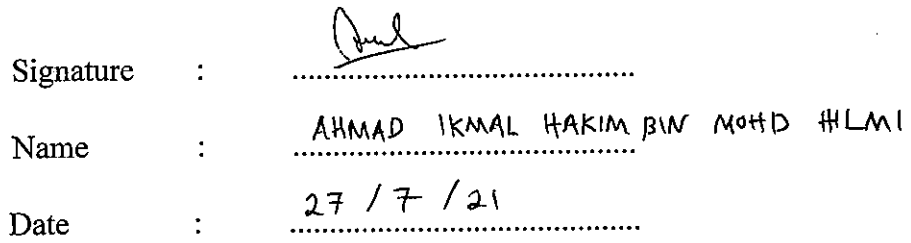 Signature :
Name : AHMAD IKMAL HAKIM BIN MOHD HILMI
Date : 27 / 7 / 21